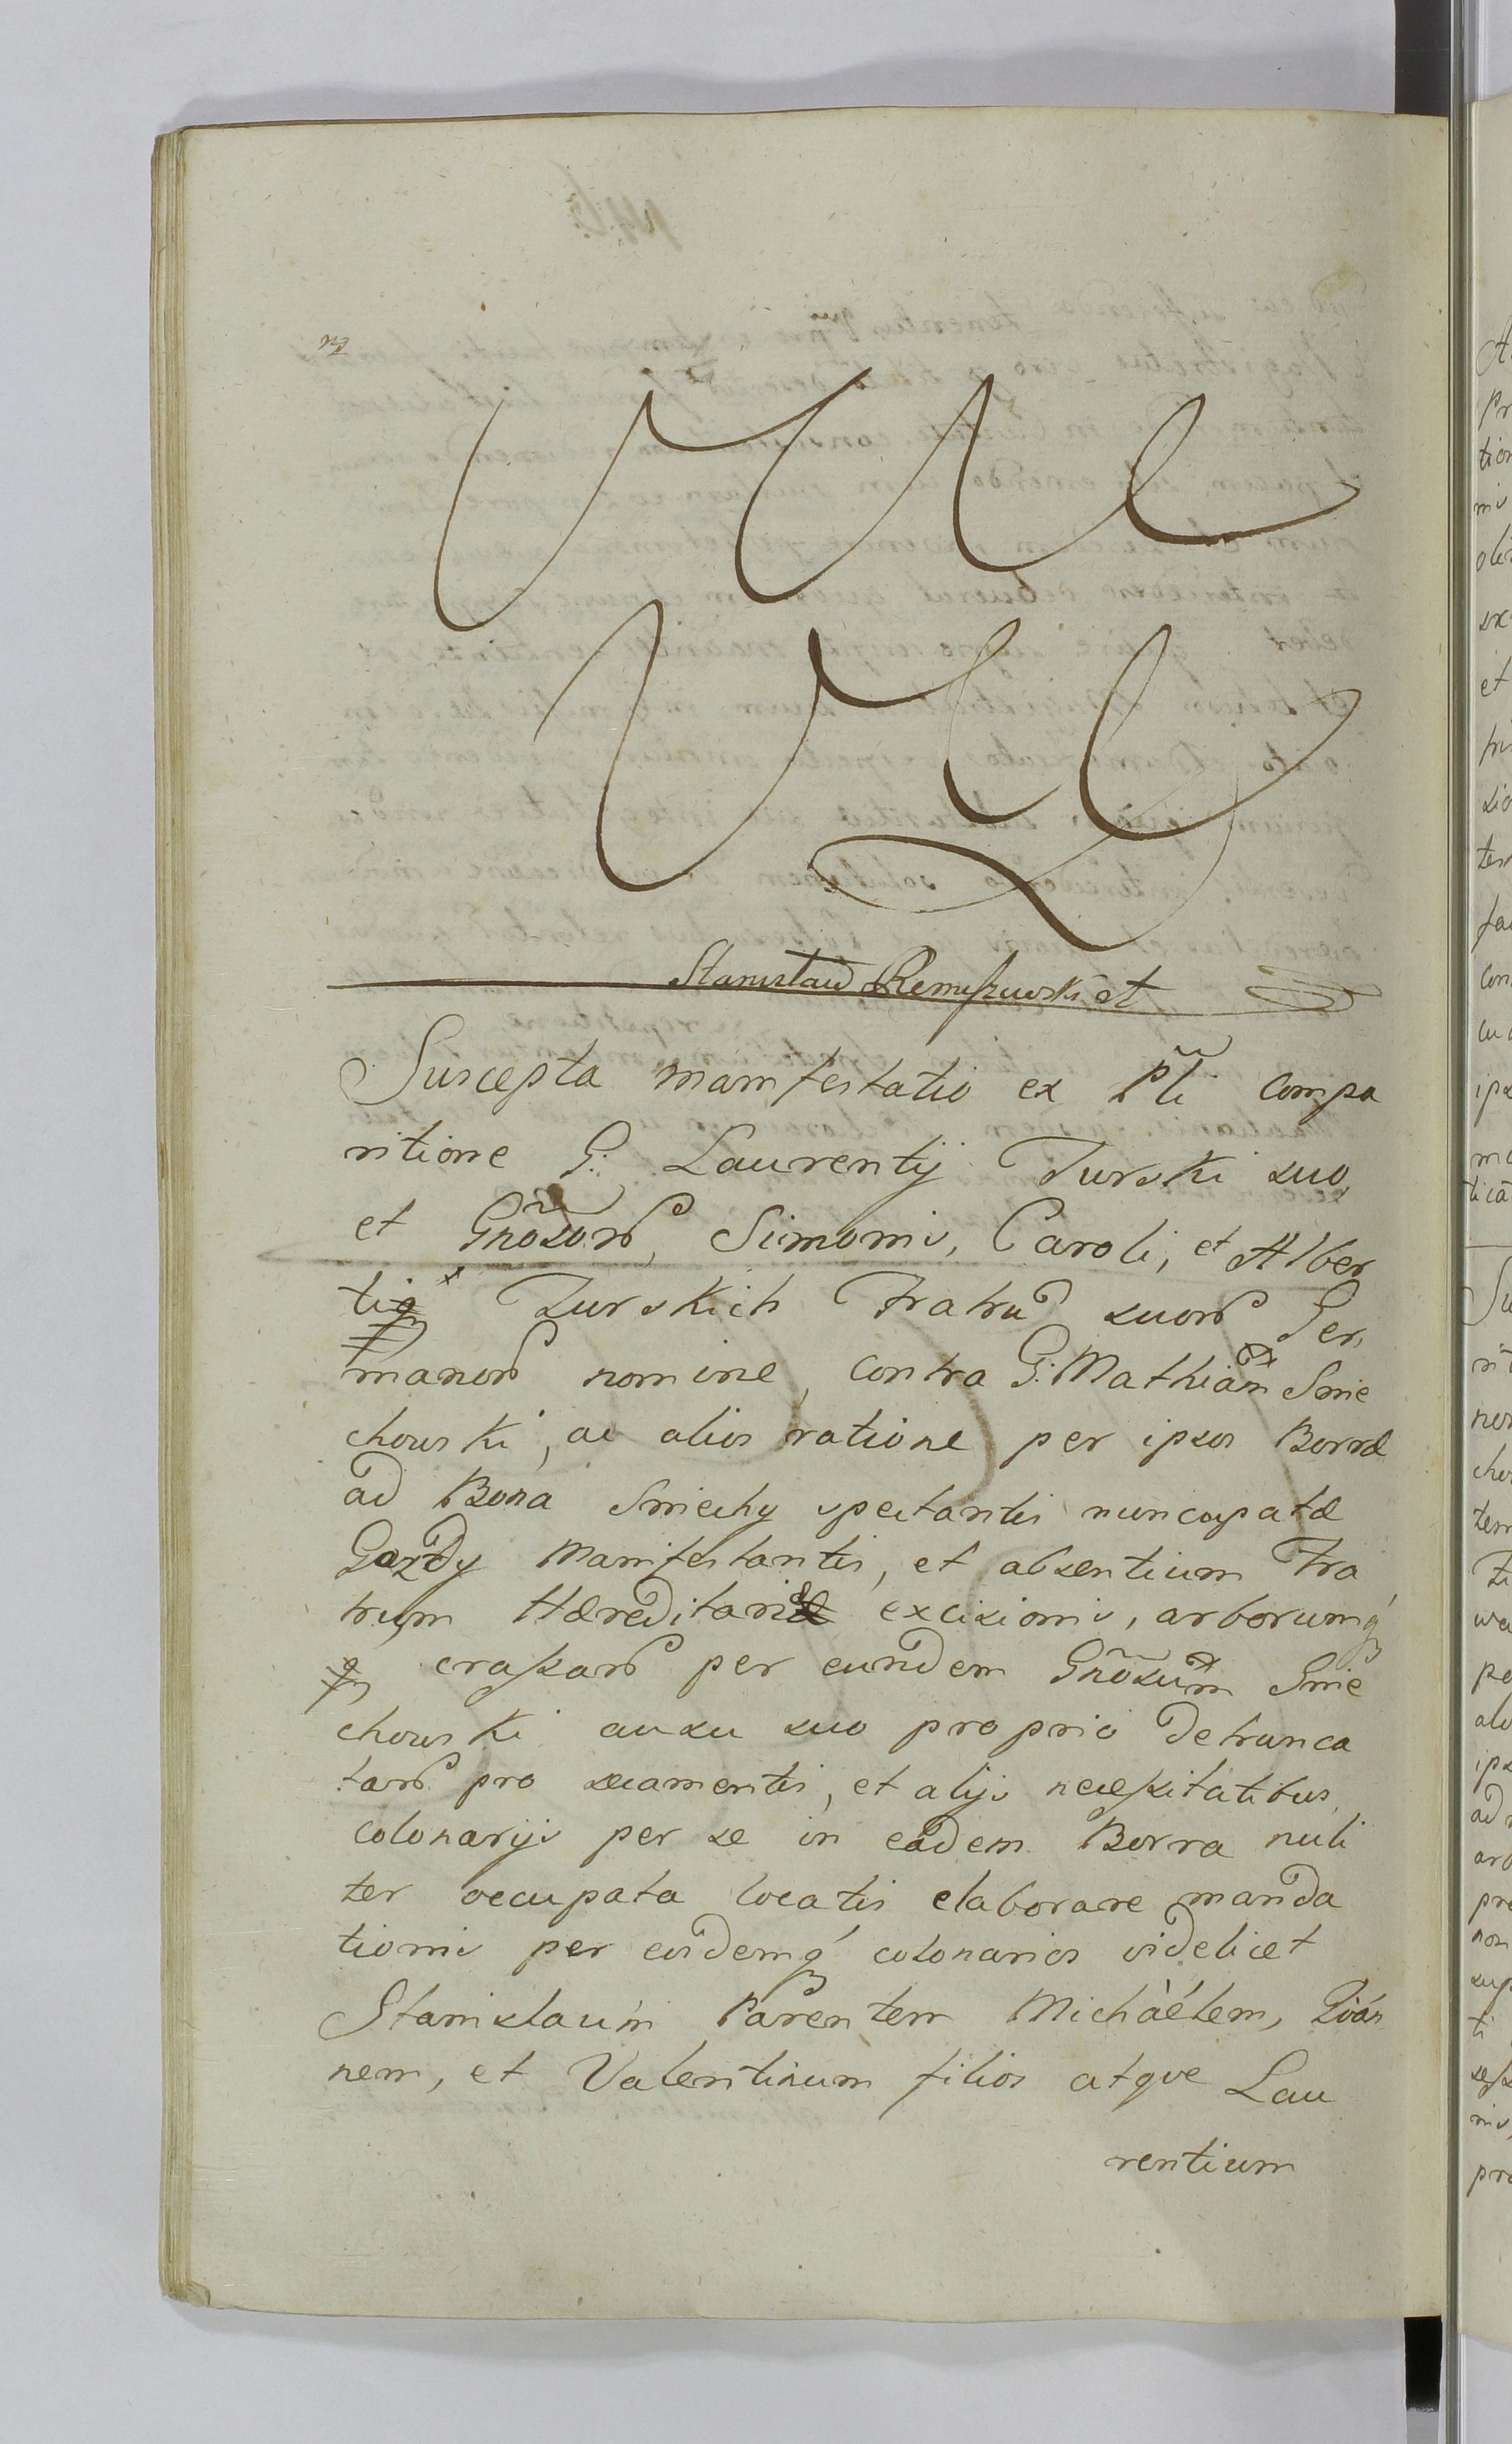 Stanisław Remiszewski et
Suscepta manifestatio ex Pli compa
ritione G: Laurentij Turski suo,
et Gnosor, Simonis, Caroli, et Alber
tiq Turskich Fratru suor Ger,
manor nomine, contra G: Mathiam Smie
chowski, ac alios ratione per ipsos Borræ
ad Bona Smiechy spectantis nuncupatæ
Gozdy Manifestantis, et absentium Fra
trum Hæreditariæ excisionis, arborumq́
crassar per eundem Gnosum Smie
chowski ausu suo proprio detrunca
tar pro ædamentis, et alijs necessitatibus
colonarijs per se in eadem Borra nuli
ter occupata locatis elaborare manda
tionis per eosdemq́ colonarios videlicet
Stanislaum Parentem Michàélem, Joán
nem, et Valentinum filios atque Lau
rentium